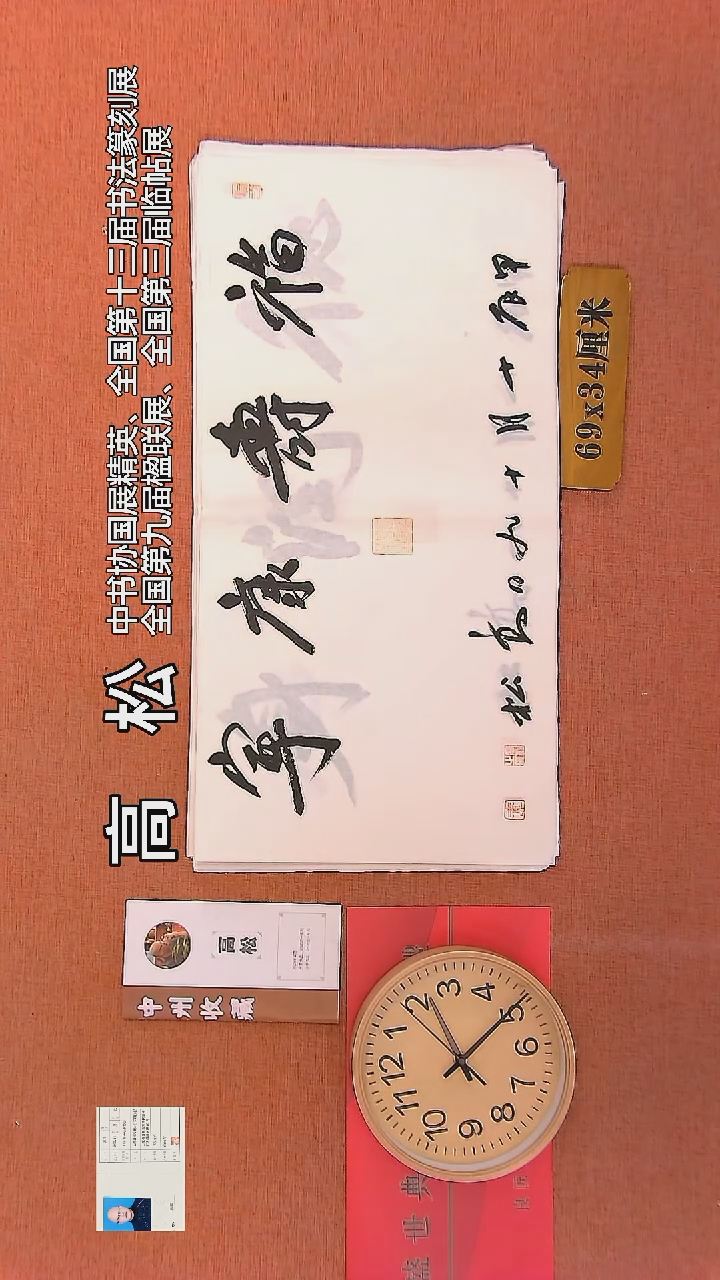 高 松
中书协国展精英、全国第十三届书法篆刻展
全国第九届楹联展、全国第三届临帖展
福壽康寧
甲辰十月十九日高松
69x34厘米
中州收藏
高松
盛世典
12
1
2
3
4
5
6
7
8
9
10
11